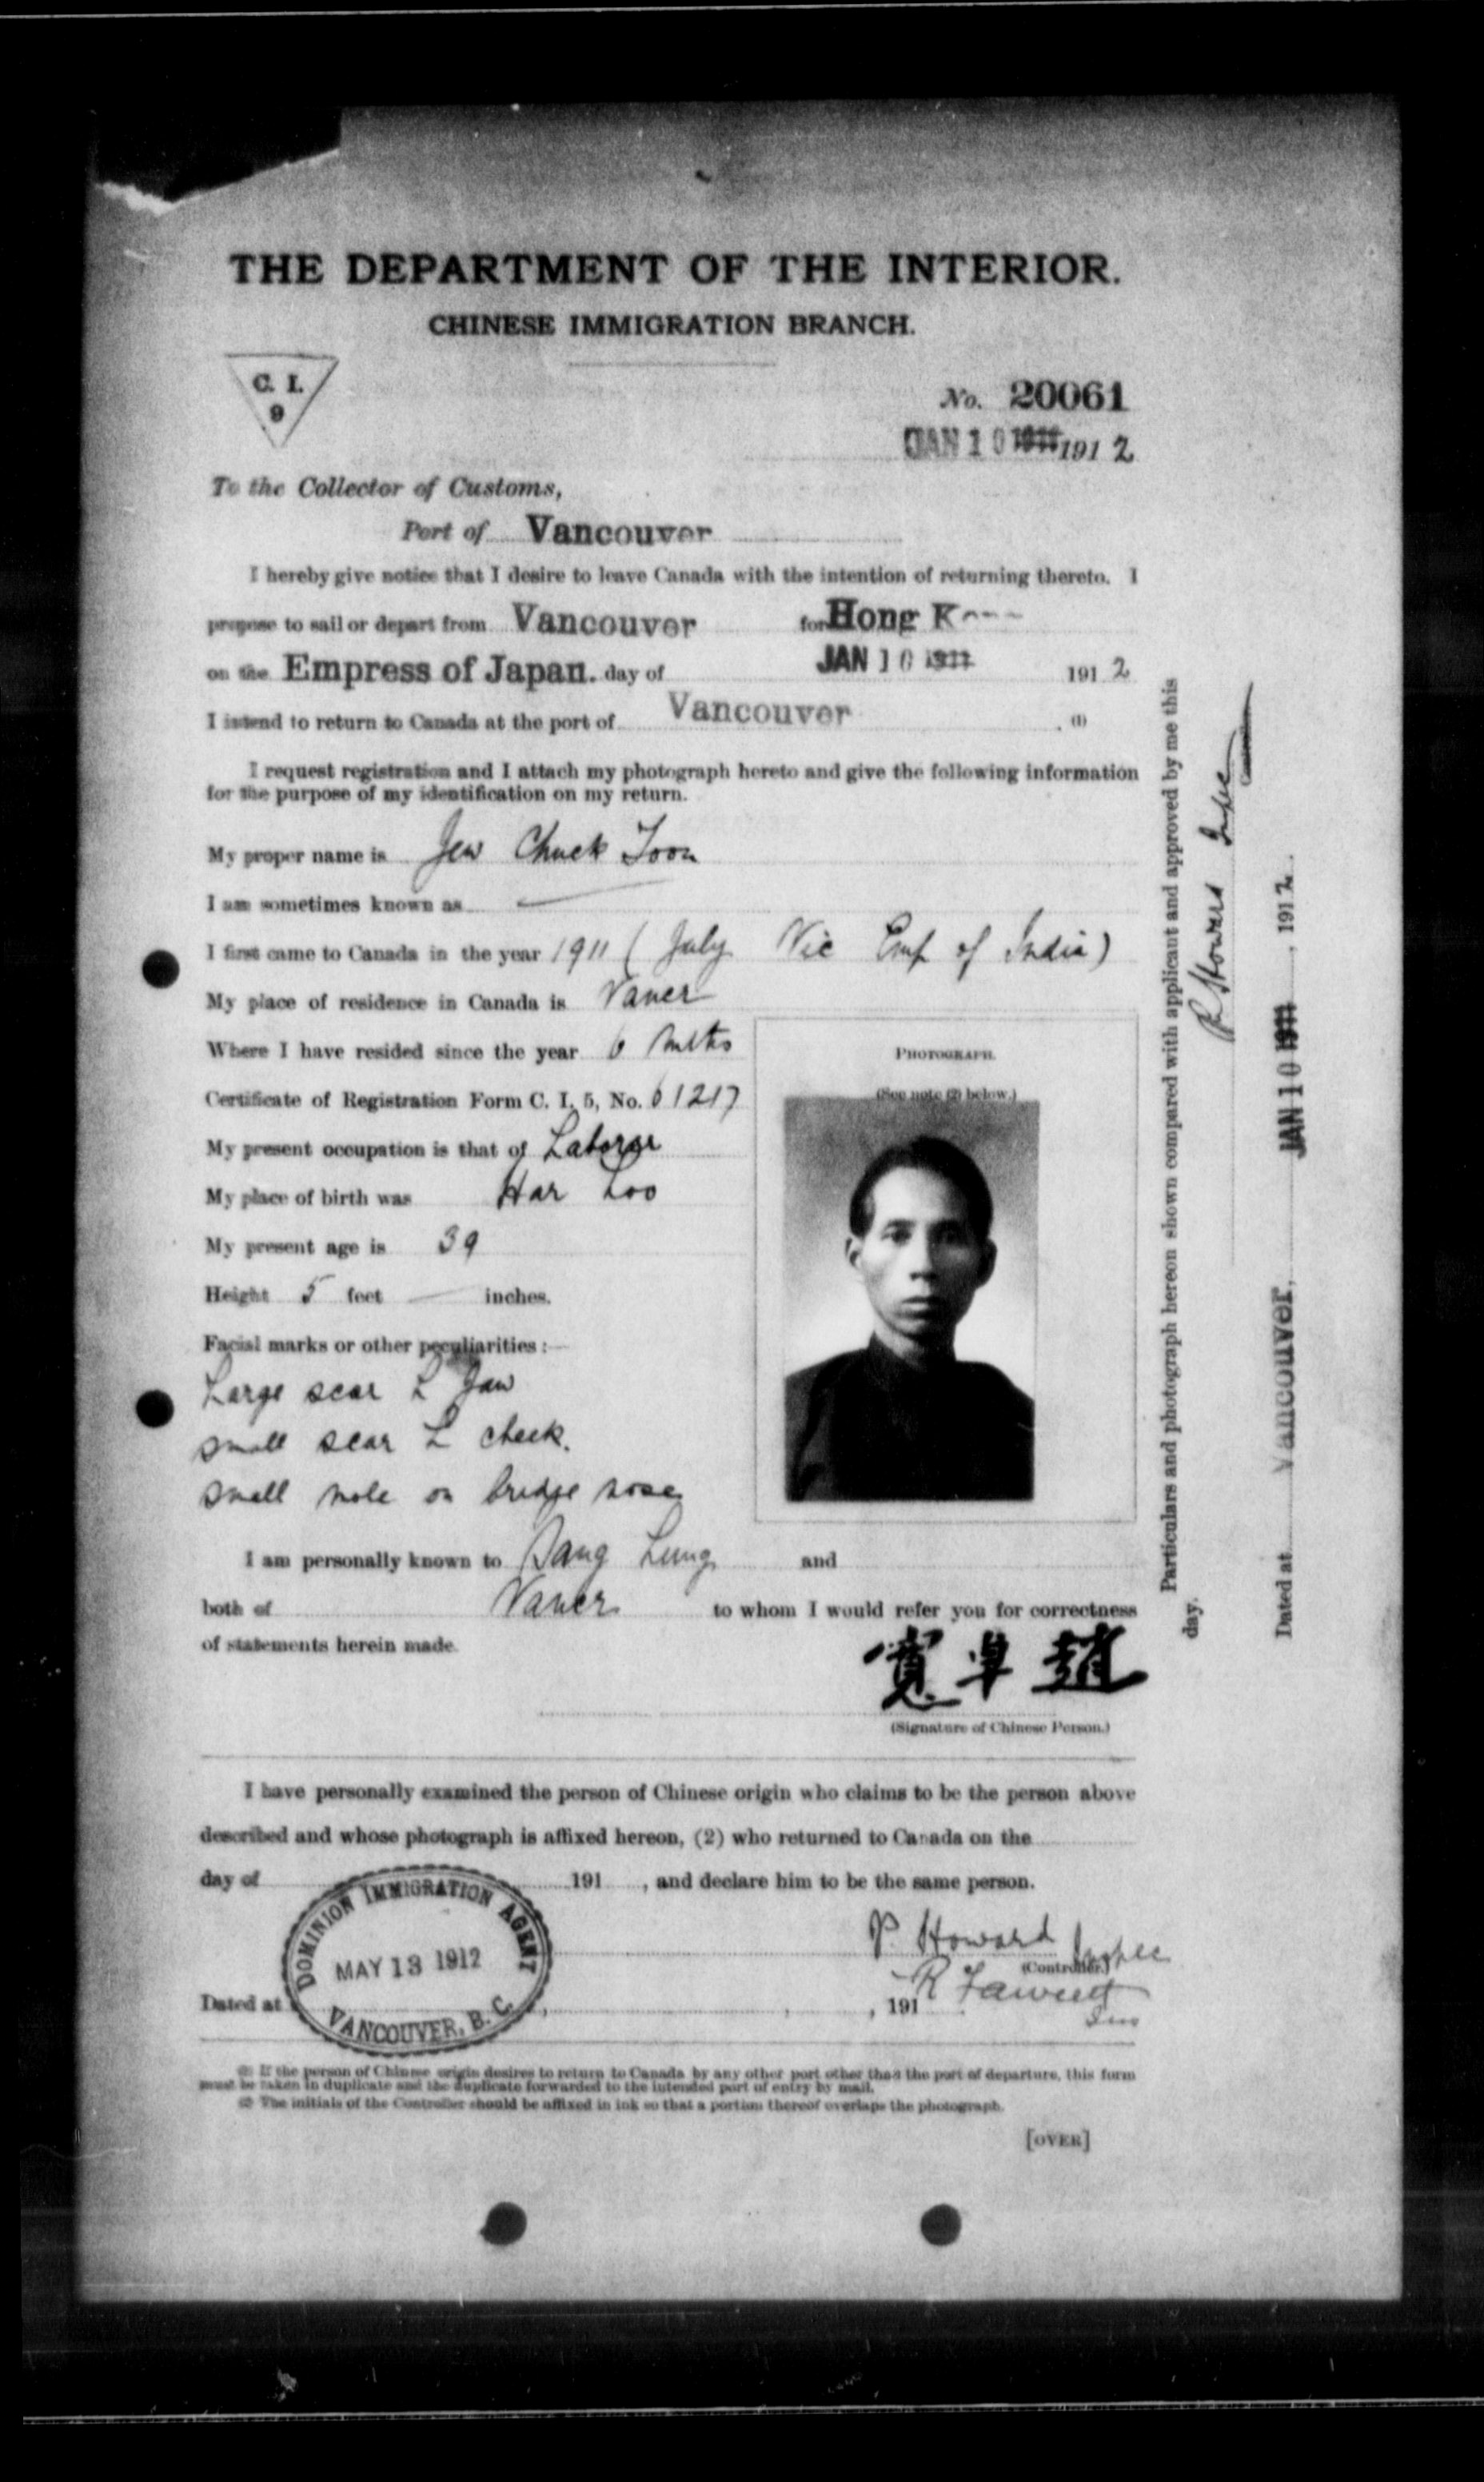 THE DEPARTMENT OF THE INTERIOR.
CHINESE IMMIGRATION BRANCH.
C. I.
9
No. 20061
JAN 10 1911 191 2
To the Collector of Customs,
Port of Vancouver
I hereby give notice that I desire to leave Canada with the intention of returning thereto. I
propose to sail or depart from Vancouver for Hong K
on the Empress of Japan. day of JAN 10 1911 191 2
I intend to return to Canada at the port of Vancouver . (1)
I request registration and I attach my photograph hereto and give the following information
for the purpose of my identification on my return.
My proper name is Jew Chuck Foon
I am sometimes known as —
I first came to Canada in the year 1911 ( July Vic Emp of India)
My place of residence in Canada is Vancr
Where I have resided since the year 6 mths
Certificate of Registration Form C. I. 5, No. 61217
My present occupation is that of Laborer
My place of birth was Har Loo
My present age is 39
Height 5 feet — inches.
Facial marks or other peculiarities :—
Large scar L Jaw
small scar L cheek.
small mole on bridge nose
PHOTOGRAPH.
(See note (2) below.)
I am personally known to Sang Lung and
both of Vancr to whom I would refer you for correctness
of statements herein made
寛卓趙
(Signature of Chinese Person.)
I have personally examined the person of Chinese origin who claims to be the person above
described and whose photograph is affixed hereon, (2) who returned to Canada on the
day of 191 , and declare him to be the same person.
DOMINION IMMIGRATION AGENT
MAY 13 1912
VANCOUVER, B. C.
P. Howard Inspec
(Controller.)
R Fawcett
Dated at , , , 191
(1) If the person of Chinese origin desires to return to Canada by any other port other than the port of departure, this form
must be taken in duplicate and the duplicate forwarded to the intended port of entry by mail.
(2) The initials of the Controller should be affixed in ink so that a portion thereof overlaps the photograph.
[OVER]
Particulars and photograph hereon shown compared with applicant and approved by me this
day.
P Howard Inspec
Controller
Dated at Vancouver, JAN 10 1911 , 191 2.